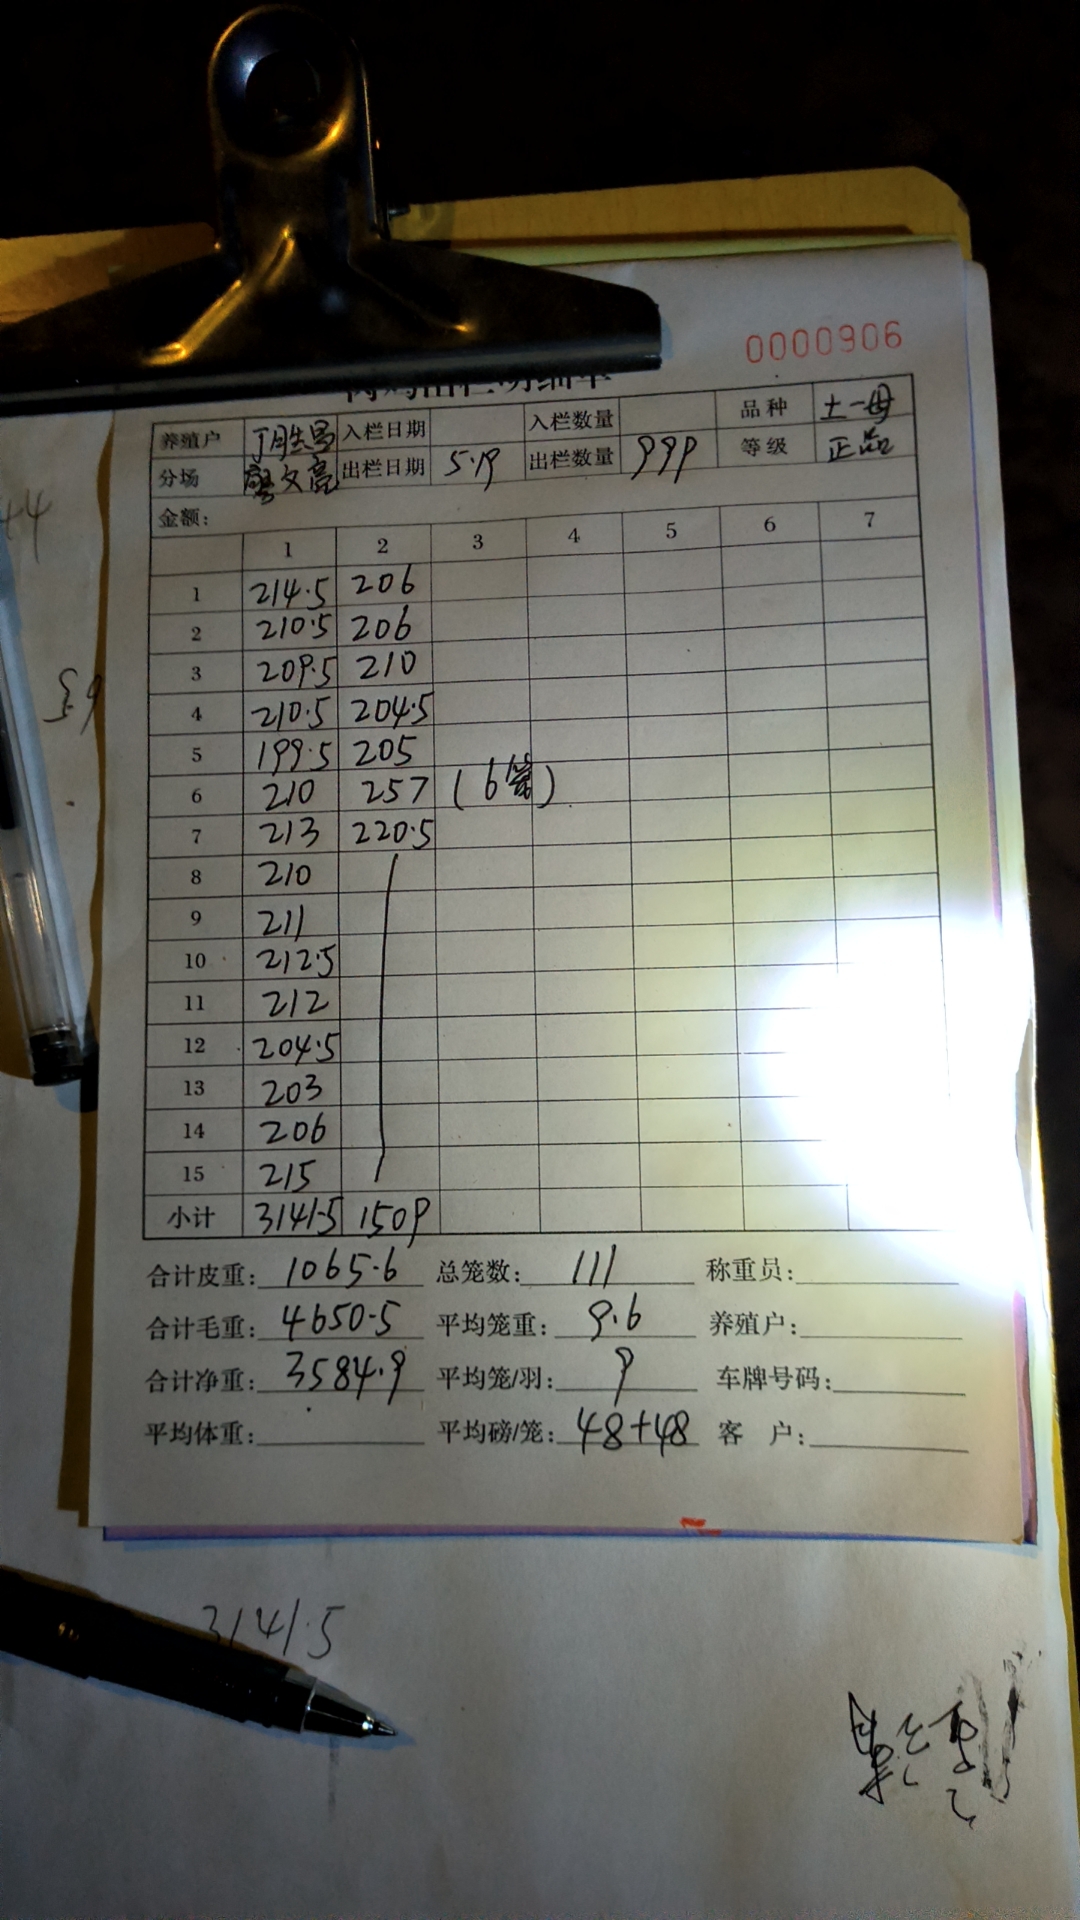 0000906
养殖户 丁胜昌 入栏日期 入栏数量 品种 土一母
分场 廖文亮 出栏日期 5.19 出栏数量 999 等级 正品
金额:
1 2 3 4 5 6 7
1 214.5 206
2 210.5 206
3 209.5 210
4 210.5 204.5
5 199.5 205
6 210 257 (6笼)
7 213 220.5
8 210
9 211
10 212.5
11 212
12 204.5
13 203
14 206
15 215
小计 3141.5 1509
合计皮重: 1065.6 总笼数: 111 称重员:
合计毛重: 4650.5 平均笼重: 9.6 养殖户:
合计净重: 3584.9 平均笼/羽: 9 车牌号码:
平均体重: 平均磅/笼: 48+48 客 户:
3141.5